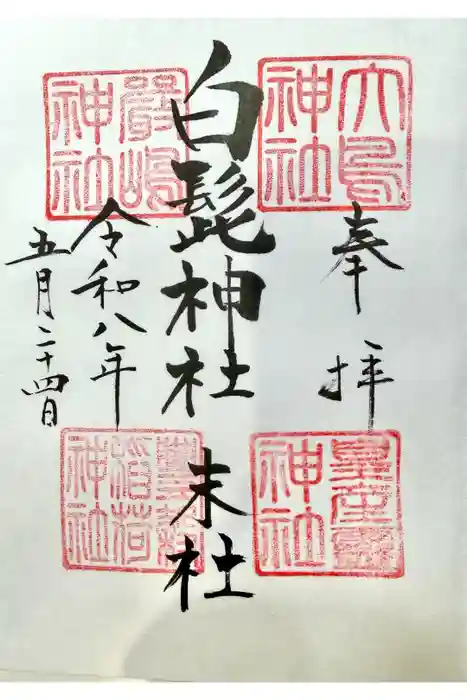 奉拝
白髭神社
末社
令和八年
五月二十四日
大鳥神社
嚴嶋神社
稲荷神社
神社